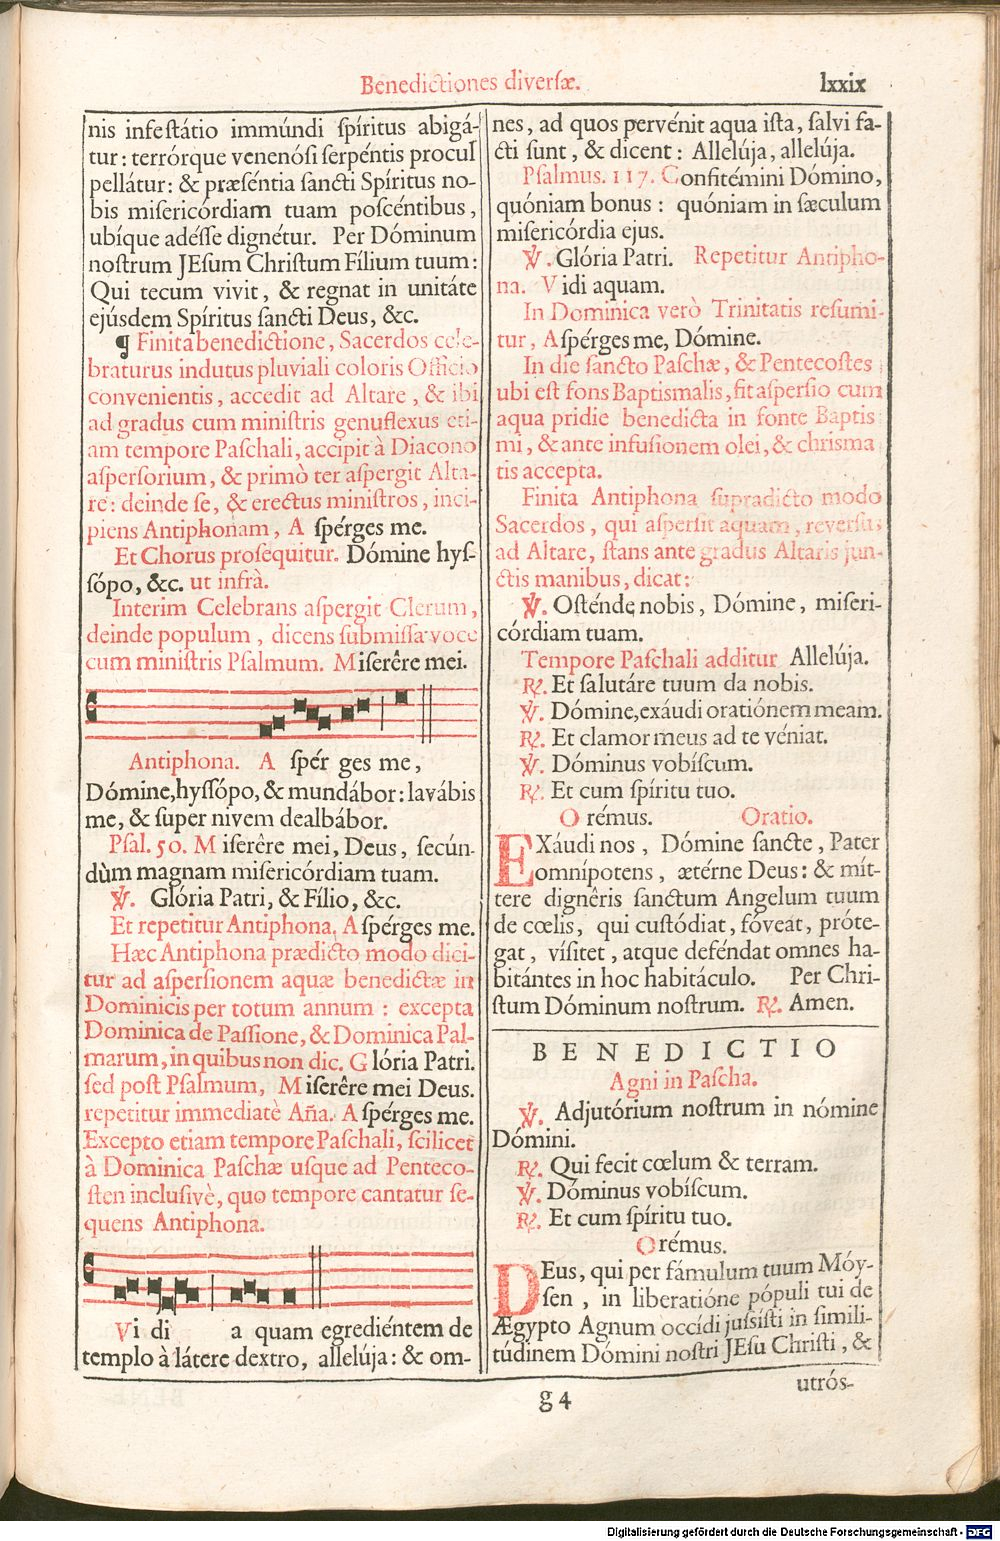 Benedictiones diversæ.
lxxix
nis infestátio immúndi spíritus abigá-
tur: terrórque venenósi serpéntis procul
pellátur: & præséntia sancti Spíritus no-
bis misericórdiam tuam poscéntibus,
ubíque adésse dignétur. Per Dóminum
nostrum JEsum Christum Fílium tuum:
Qui tecum vivit, & regnat in unitáte
ejúsdem Spíritus sancti Deus, &c.
¶ Finita benedictione, Sacerdos cele-
braturus indutus pluviali coloris Officio
convenientis, accedit ad Altare, & ibi
ad gradus cum ministris genuflexus eti-
am tempore Paschali, accipit à Diacono
aspersorium, & primò ter aspergit Alta-
re: deinde se, & erectus ministros, inci-
piens Antiphonam, A spérges me.
Et Chorus prosequitur. Dómine hys-
sópo, &c. ut infrà.
Interim Celebrans aspergit Clerum,
deinde populum, dicens submissa voce
cum ministris Psalmum. M iserêre mei.
Antiphona. A spér ges me,
Dómine, hyssópo, & mundábor: lavábis
me, & super nivem dealbábor.
Psal. 50. M iserêre mei, Deus, secún-
dùm magnam misericórdiam tuam.
℣. Glória Patri, & Fílio, &c.
Et repetitur Antiphona. A spérges me.
Hæc Antiphona prædicto modo dici-
tur ad aspersionem aquæ benedictæ in
Dominicis per totum annum: excepta
Dominica de Passione, & Dominica Pal-
marum, in quibus non dic. G lória Patri.
sed post Psalmum, M iserêre mei Deus.
repetitur immediatè Aña. A spérges me.
Excepto etiam tempore Paschali, scilicet
à Dominica Paschæ usque ad Penteco-
sten inclusivè, quo tempore cantatur se-
quens Antiphona.
Vi di a quam egrediéntem de
templo à látere dextro, allelúja: & om-
nes, ad quos pervénit aqua ista, salvi fa-
cti sunt, & dicent: Allelúja, allelúja.
Psalmus. 117. Confitémini Dómino,
quóniam bonus: quóniam in sæculum
misericórdia ejus.
℣. Glória Patri. Repetitur Antipho-
na. V idi aquam.
In Dominica verò Trinitatis resumi-
tur, A spérges me, Dómine.
In die sancto Paschæ, & Pentecostes
ubi est fons Baptismalis, fit aspersio cum
aqua pridie benedicta in fonte Baptis
mi, & ante infusionem olei, & chrisma
tis accepta.
Finita Antiphona supradicto modo
Sacerdos, qui aspersit aquam, reversus
ad Altare, stans ante gradus Altaris jun-
ctis manibus, dicat:
℣. Osténde nobis, Dómine, miseri-
córdiam tuam.
Tempore Paschali additur Allelúja.
℟. Et salutáre tuum da nobis.
℣. Dómine, exáudi oratiónem meam.
℟. Et clamor meus ad te véniat.
℣. Dóminus vobíscum.
℟. Et cum spíritu tuo.
O rémus. Oratio.
EXáudi nos, Dómine sancte, Pater
omnípotens, ætérne Deus: & mít-
tere dignêris sanctum Angelum tuum
de cœlis, qui custódiat, fóveat, próte-
gat, vísitet, atque deféndat omnes ha-
bitántes in hoc habitáculo. Per Chri-
stum Dóminum nostrum. ℟. Amen.
BENEDICTIO
Agni in Pascha.
℣. Adjutórium nostrum in nómine
Dómini.
℟. Qui fecit cœlum & terram.
℣. Dóminus vobíscum.
℟. Et cum spíritu tuo.
Orémus.
DEus, qui per fámulum tuum Móy-
sen, in liberatióne pópuli tui de
Ægypto Agnum occídi jussísti in simili-
túdinem Dómini nostri JEsu Christi, &
utrós-
g 4
Digitalisierung gefördert durch die Deutsche Forschungsgemeinschaft - DFG